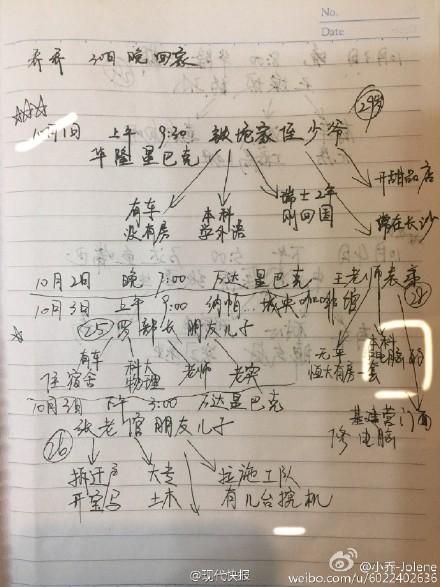 No.
Date
乔乔 30日 晚 回家
10月1日 上午 9:30 铁坨家侄少爷 29岁
华隆星巴克
有车
没有房
本科
学外语
瑞士2年
刚回国
开甜品店
常在长沙
10月2日 晚 7:00 万达星巴克 王老师表亲 28
10月3日 上午 9:00 纳帕...城央咖啡馆
25 罗部长朋友儿子
有车
住宿舍
科大
物理
老师
老实
无车
恒大有房一套
本科
电脑
基建营门面
修电脑
10月3日 下午 3:00 万达星巴克
26 张老官朋友儿子
拆迁户
开宝马
大专
土木
拉施工队
有几台挖机
@现代快报
@小乔-Jolene
weibo.com/u/6022402636